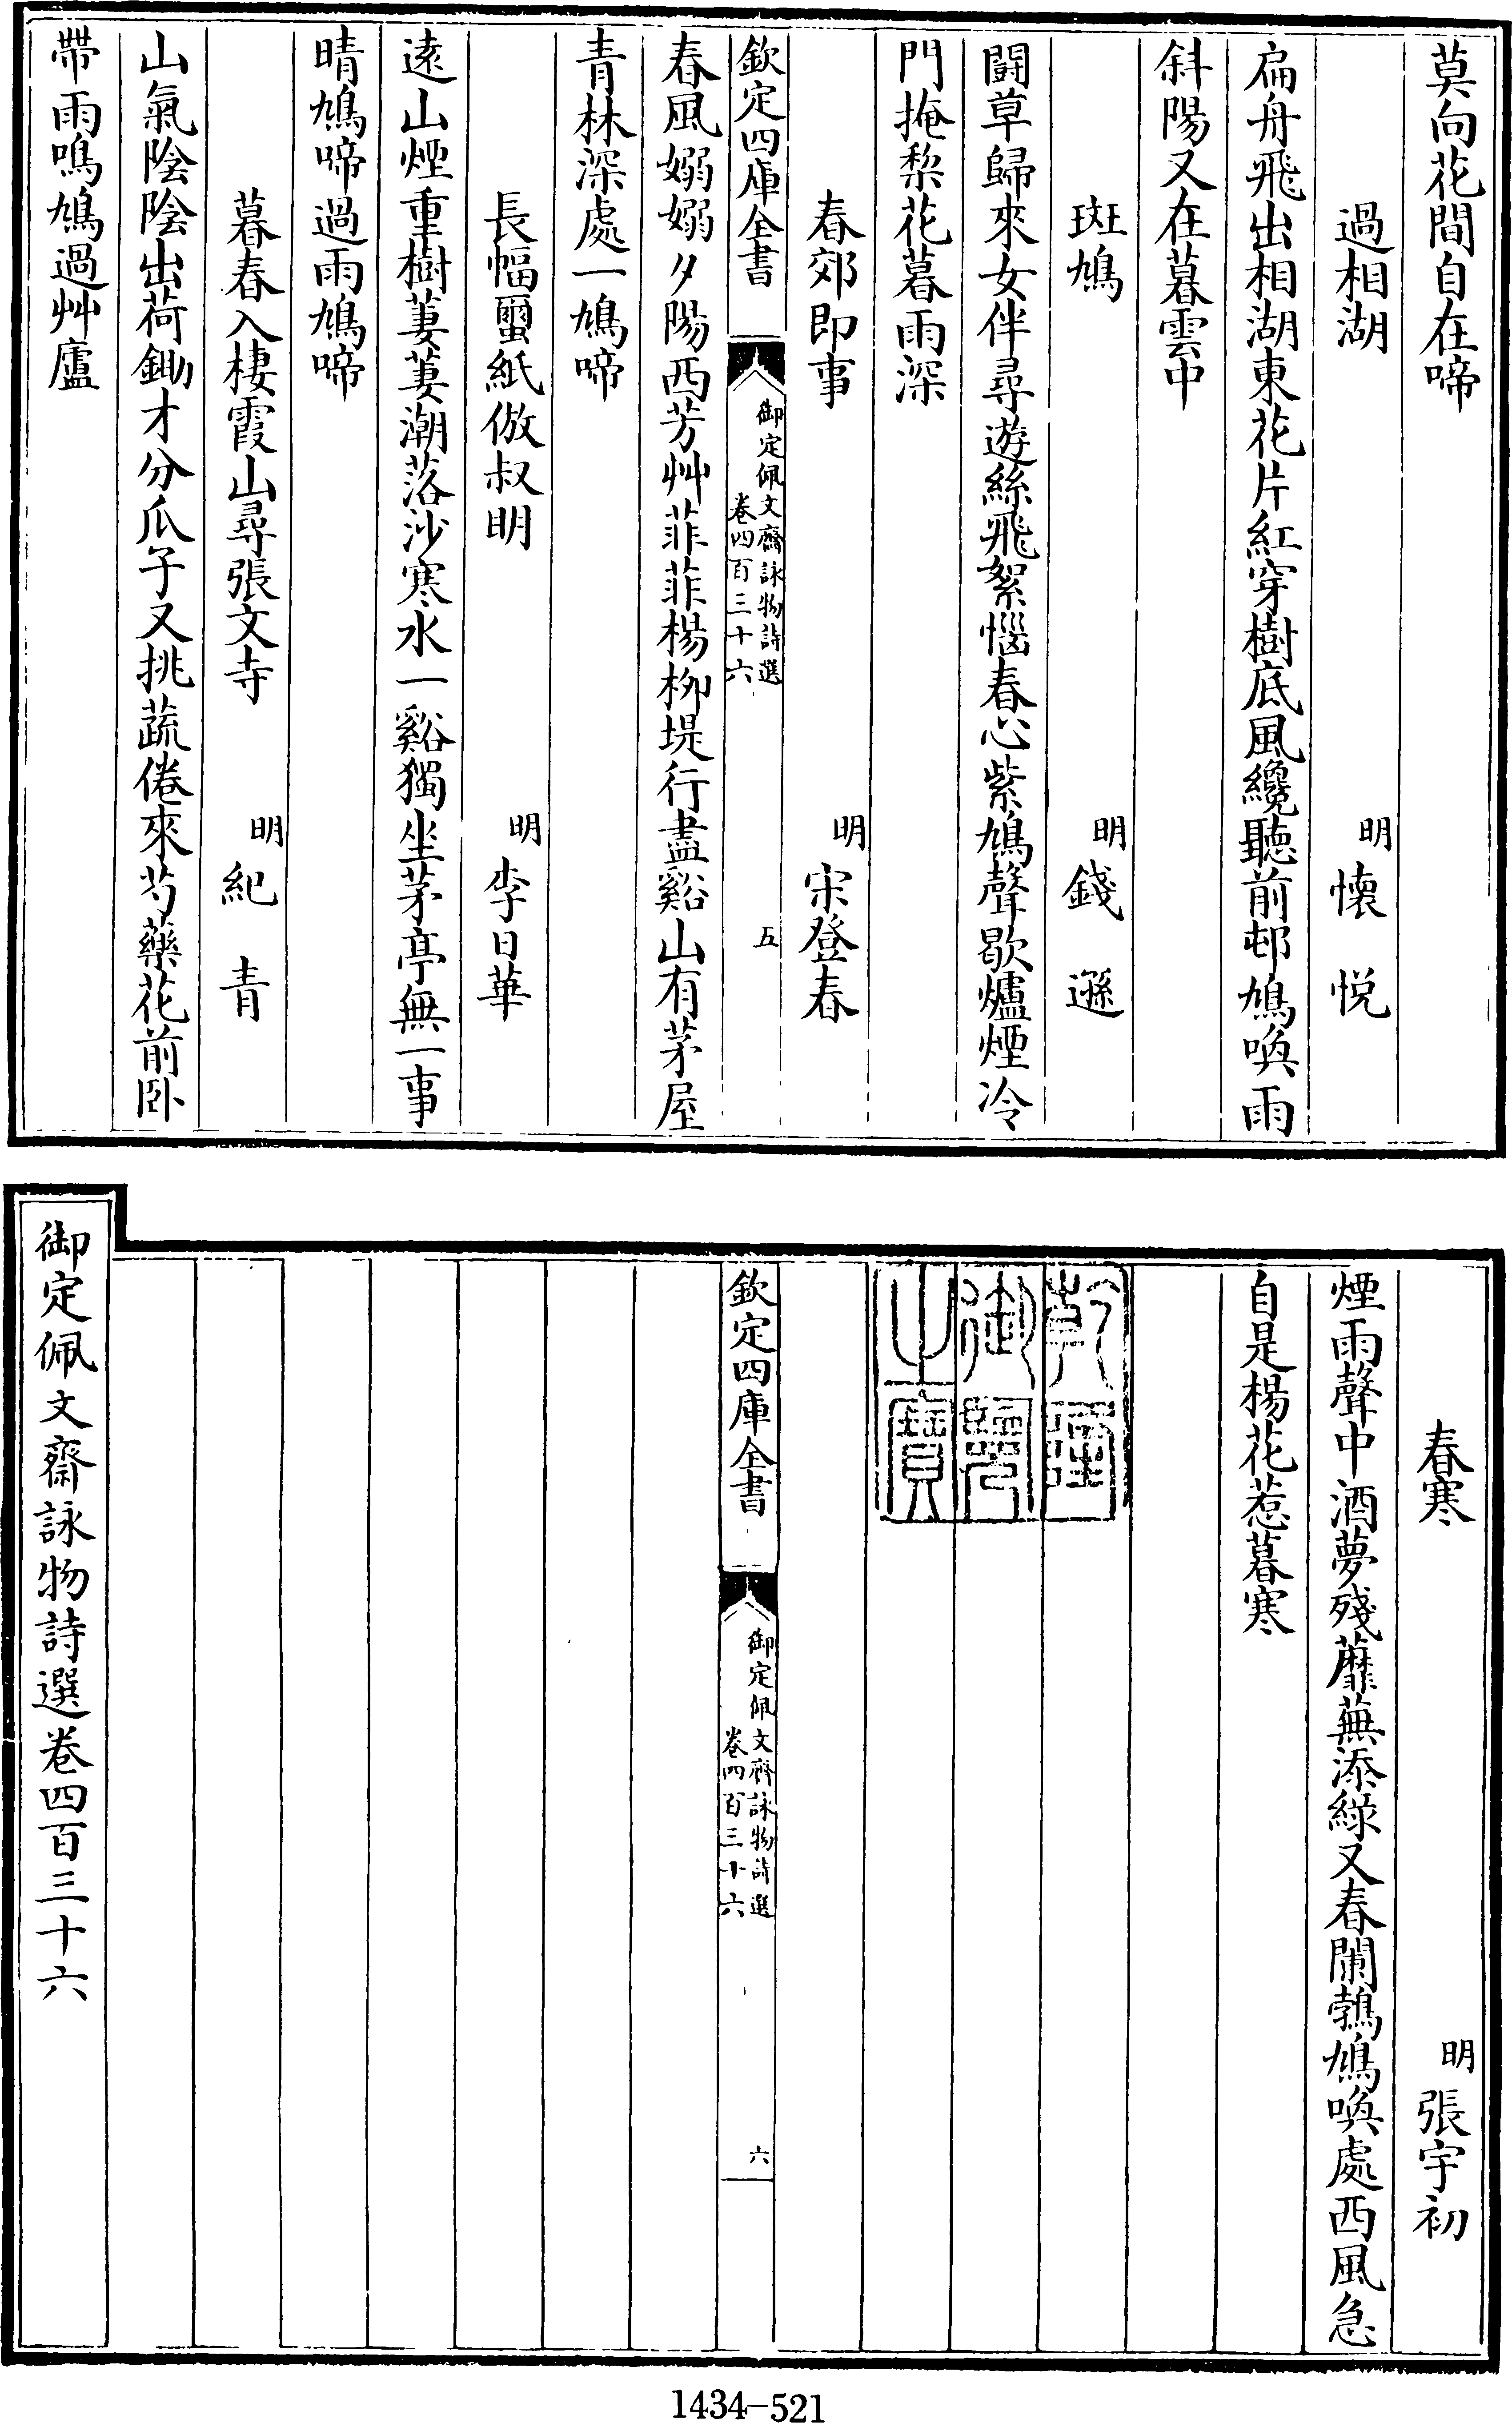 莫向花間自在啼
過相湖　明　懷　悅
扁舟飛出相湖東花片紅穿樹底風纔聽前邨鳩喚雨
斜陽又在暮雲中
斑鳩　明　錢　遜
鬭草歸來女伴尋遊絲飛絮惱春心紫鳩聲歇爐煙冷
門掩棃花暮雨深
春郊即事　明　宋登春
欽定四庫全書
御定佩文齋詠物詩選
卷四百三十六
五
春風嫋嫋夕陽西芳艸菲菲楊柳堤行盡谿山有茅屋
青林深處一鳩啼
長幅蠒紙倣叔明　明　李日華
遠山煙重樹萋萋潮落沙寒水一谿獨坐茅亭無一事
晴鳩啼過雨鳩啼
暮春入棲霞山尋張文寺　明　紀　青
山氣陰陰出荷鋤才分瓜子又挑蔬倦來芍藥花前卧
帶雨鳴鳩過艸廬
春寒　明　張宇初
煙雨聲中酒夢殘蘼蕪添綠又春闌鵓鳩喚處西風急
自是楊花惹暮寒
乾隆
御覽
之寶
欽定四庫全書
御定佩文齋詠物詩選
卷四百三十六
六
御定佩文齋詠物詩選卷四百三十六
1434-521